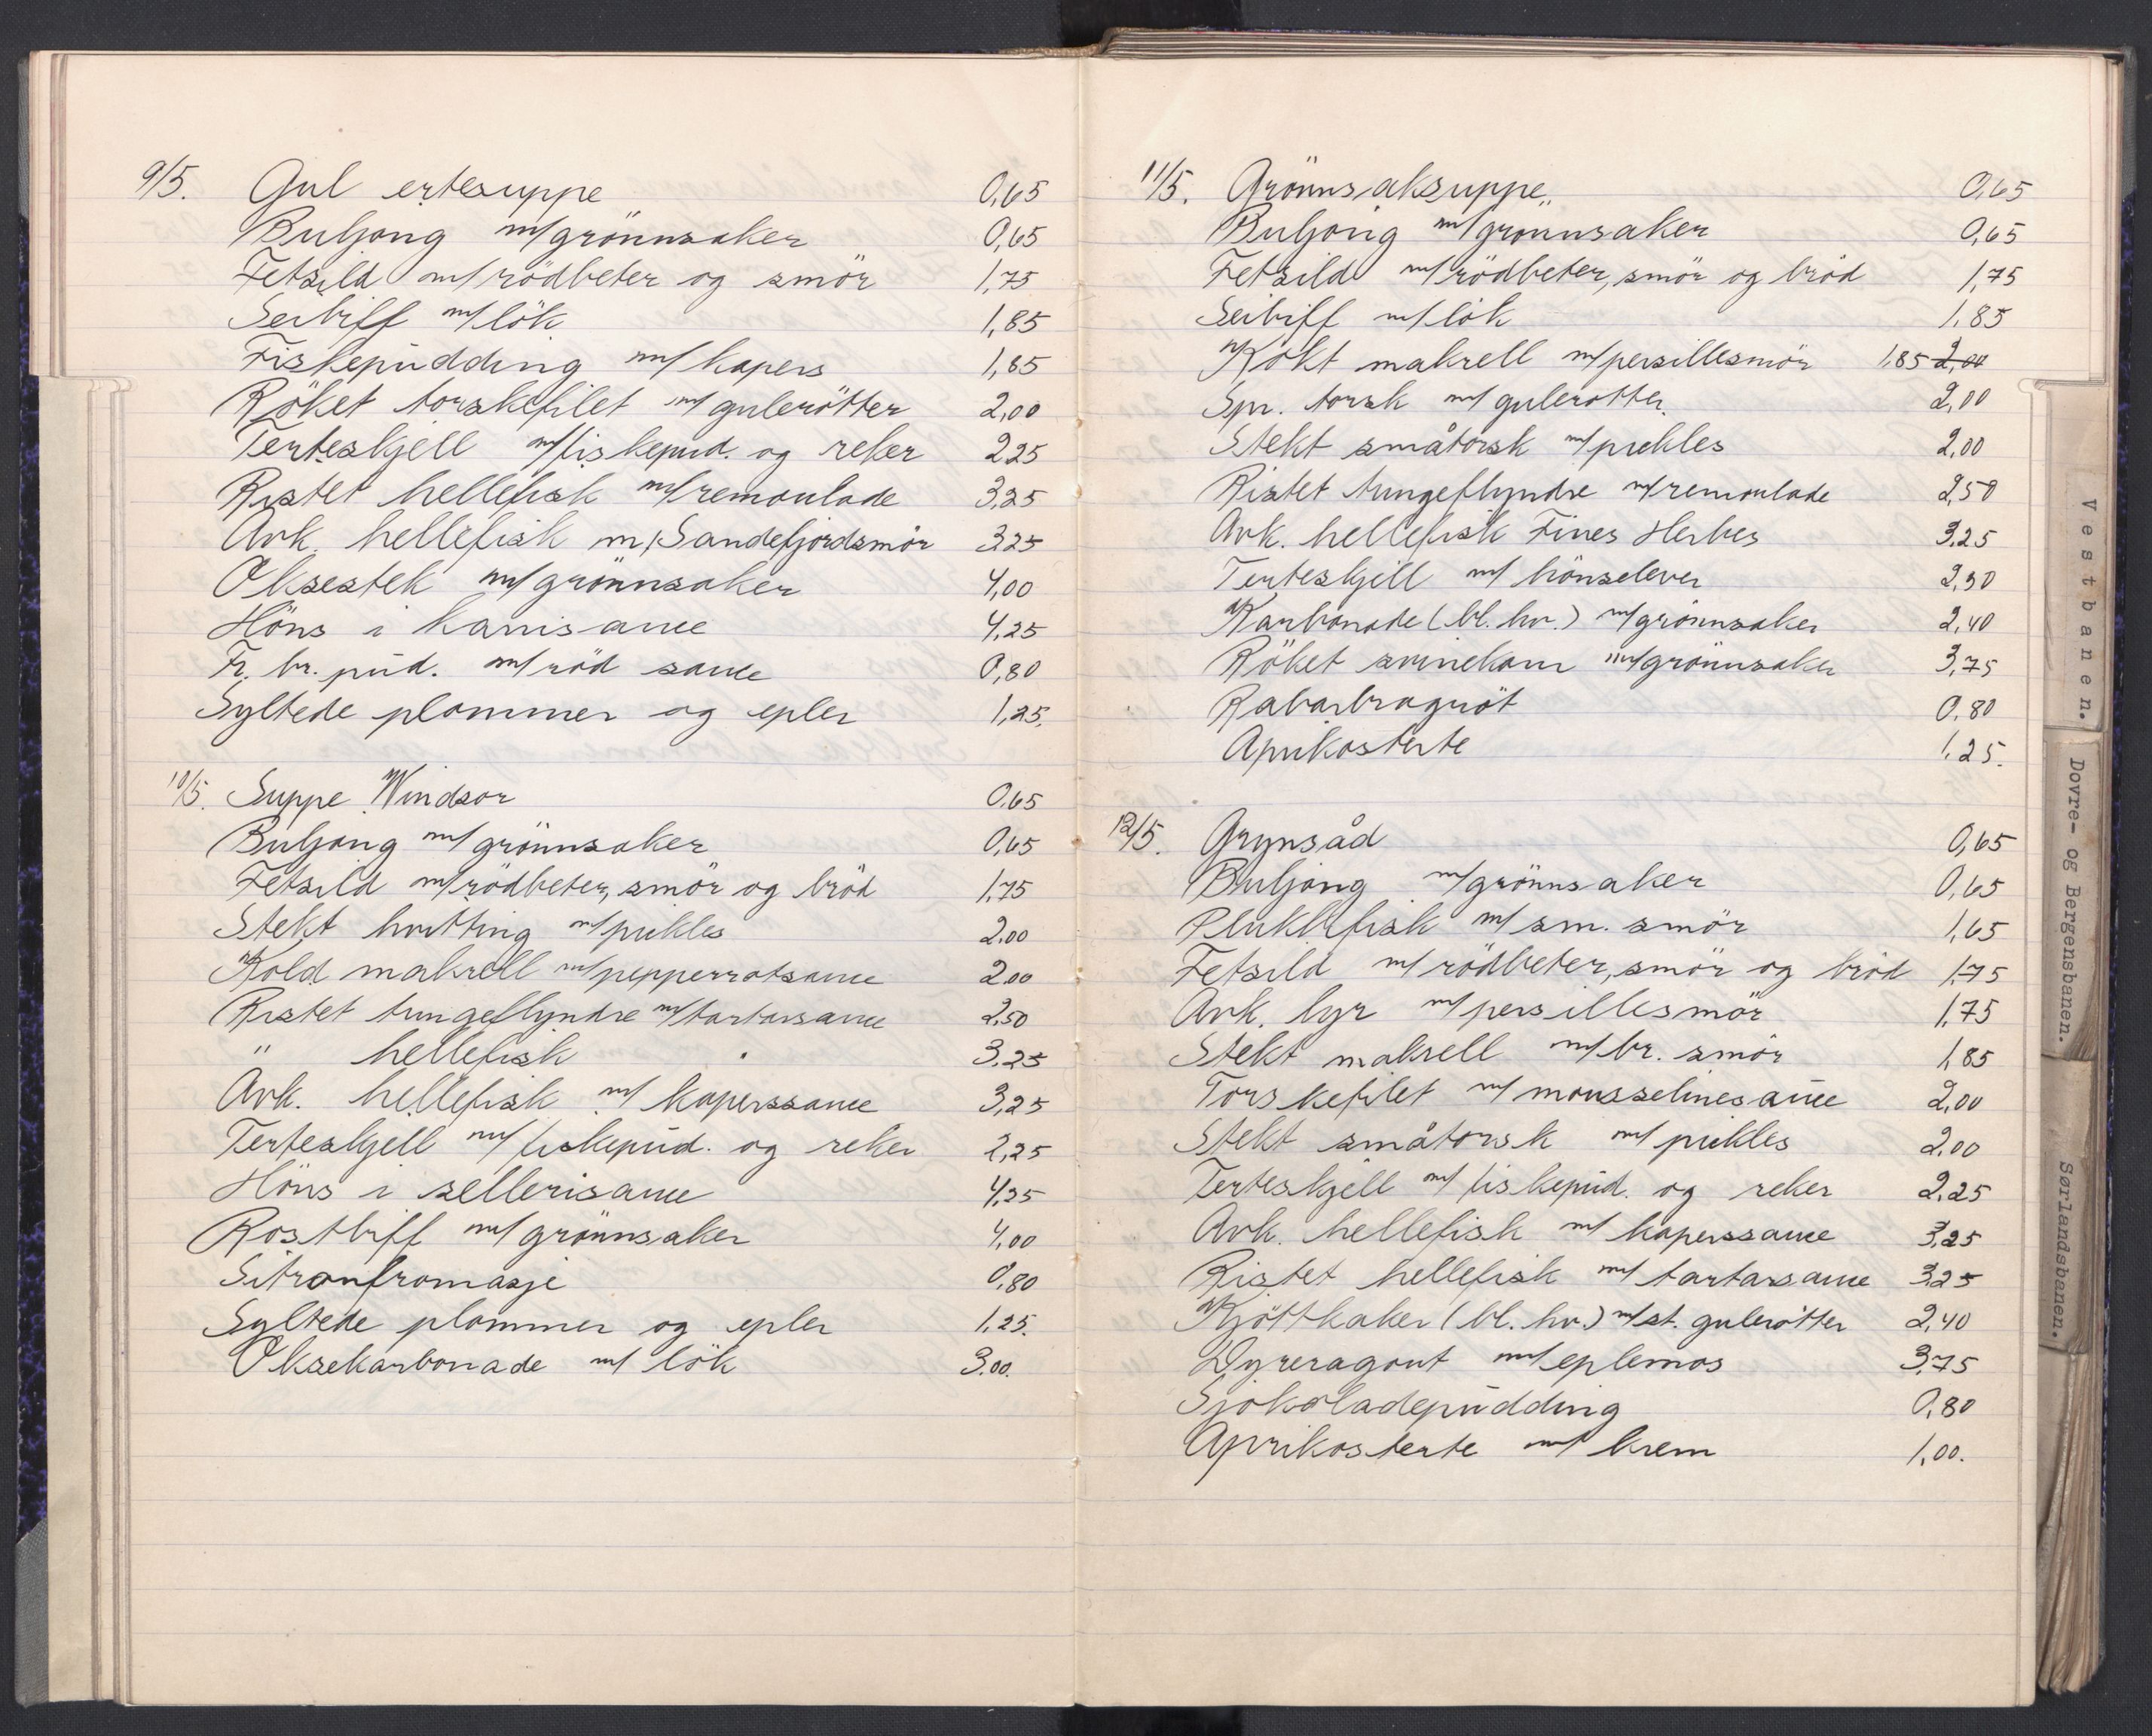 9/5. Gul ertesuppe 0,65
Buljong m/grönnsaker 0,65
Fetsild m/rödbeter og smör 1,75
Seibiff m/lök 1,85
Fiskepudding m/kapers 1,85
Röket torskefilet m/gulerötter 2,00
Terteskjell m/fiskepud. og reker 2,25
Ristet hellefisk m/remoulade 3,25
Avk. hellefisk m/Sandefjordsmör 3,25
Oksestek m/grönnsaker 4,00
Höns i karrisaue 4,25
Fr. br. pud. m/röd saue 0,80
Syltede plommer og epler 1,25.
10/5. Suppe Windsor 0,65
Buljong m/grönnsaker 0,65
Fetsild m/rödbeter, smör og bröd 1,75
Stekt hvitting m/pickles 2,00
Kold makrell m/pepperrotsaue 2,00
Ristet tungeflyndre m/tartarsaue 2,50
" hellefisk 3,25
Avk. hellefisk m/ kaperssaue 3,25
Terteskjell m/fiskepud. og reker 2,25
Höns i sellerisaue 4,25
Rostbiff m/grönnsaker 4,00
Sitronfromasje 0,80
Syltede plommer og epler 1,25.
Oksekarbonade m/ lök 3,00.
11/5. Grönnsaksuppe 0,65
Buljong m/grönnsaker 0,65
Fetsild m/rödbeter, smör og bröd 1,75
Seibiff m/lök 1,85
Kokt makrell m/persillesmör 1,85 2,00
Spr. torsk m/gulerötter 2,00
Stekt småtorsk m/pickles 2,00
Ristet tungeflyndre m/remoulade 2,50
Avk. hellefisk Fines Herbes 3,25
Terteskjell m/ hönselever 2,50
Karbonade (bl. hv.) m/grönnsaker 2,40
Röket svinekam m/grönnsaker 3,75
Rabarbragröt 0,80
Aprikosterte 1,25.
12/5. Grynsåd 0,65
Buljong m/grönnsaker 0,65
Plukkfisk m/ sm. smör 1,65
Fetsild m/rödbeter, smör og bröd 1,75
Avk. lyr m/persillesmör 1,75
Stekt makrell m/br. smör 1,85
Torskefilet m/mousselinesaue 2,00
Stekt småtorsk m/pickles 2,00
Terteskjell m/fiskepud. og reker 2,25
Avk. hellefisk m/ kaperssaue 3,25
Ristet hellefisk m/ tartarsaue 3,25
Kjöttkaker (bl. hv.) m/st. gulerötter 2,40
Dyreragout m/eplemos 3,75
Sjokoladepudding 0,80
Aprikosterte m/ krem 1,00.
Vestbanen.
Dovre- og Bergensbanen.
Sørlandsbanen.